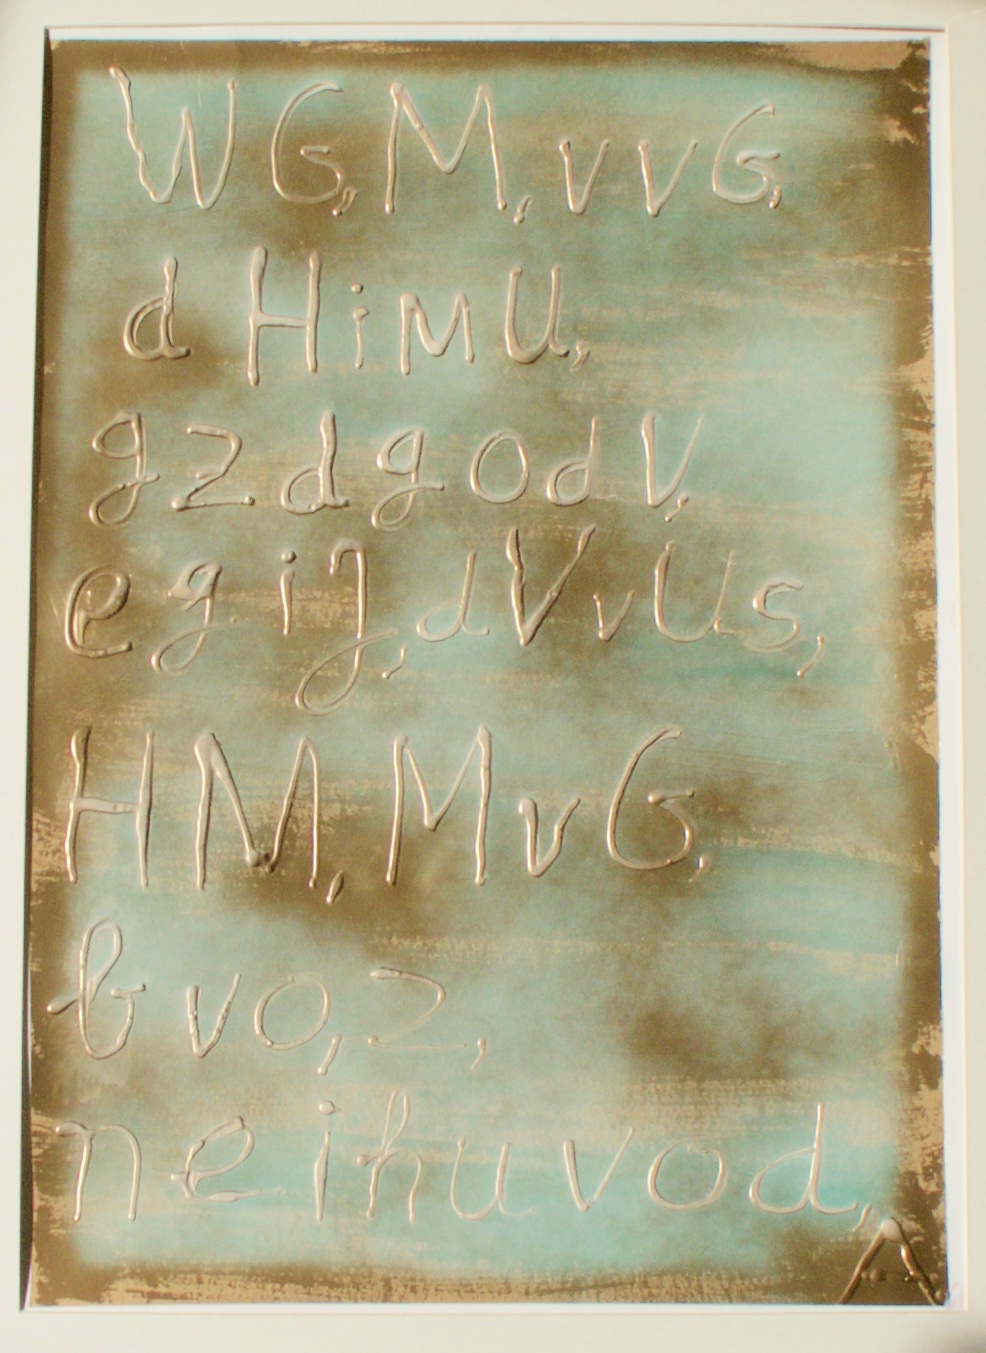 WG, M, vvG,
d HiMU,
gzdgodV,
egij, dVvUs,
HM, MvG,
bvo, z,
neihuvod,